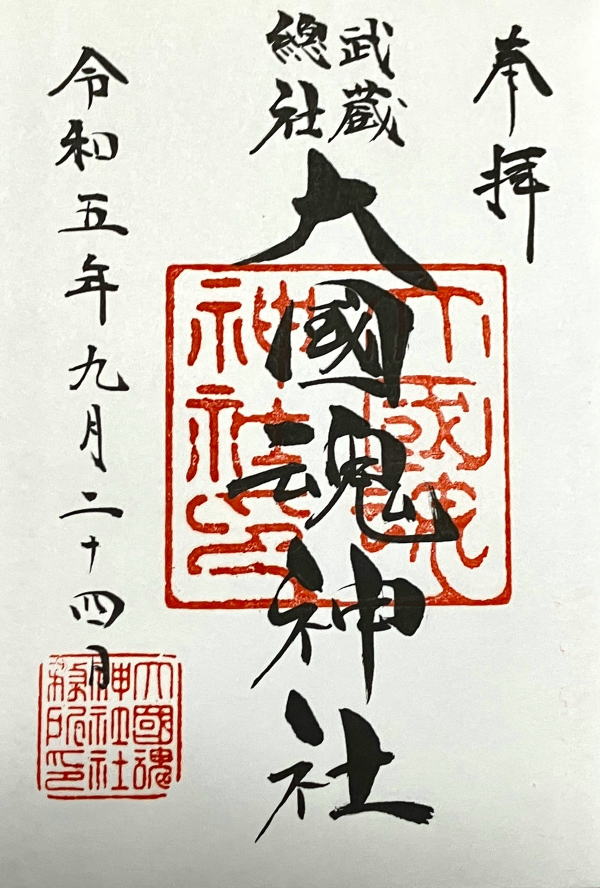 奉拝
武蔵
總社
大國魂神社
大國魂
神社印
令和五年九月二十四日
大國魂
神社社
務所印